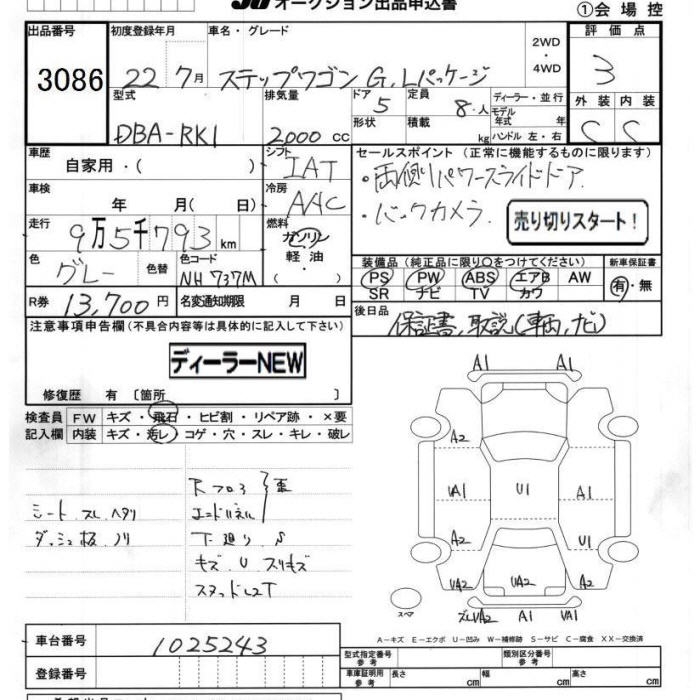 オークション出品申込書
①会場控
出品番号 初度登録年月 車名・グレード 2WD ・4WD 評価点
3086 22 7月 ステップワゴン G.Lパッケージ 3
型式 排気量 ドア 5 定員 8・人 ディーラー・並行 モデル年式 年式 外装 内装
DBA-RK1 2000 cc 形状 積載 kg ハンドル 左・右 C C
車歴 自家用・( ) シフト IAT セールスポイント (正常に機能するものに限ります)
・両側パワースライドドア
車検 年 月( 日) 冷房 AAC ・バックカメラ. 売り切りスタート!
走行 9万5千793km 燃料 ガソリン 軽油 ・( )
装備品 (純正品に限り○をつけてください) 新車保証書
色 グレー 色替 色コード NH737M
PS PW ABS エアB AW 有・無
SR ナビ TV カワ
R券 13,700円 名変通知期限 月 日
後日品 保証書、取説(車両,ナビ)
注意事項申告欄(不具合内容等は具体的に記入して下さい)
ディーラーNEW
修復歴 有 〔箇所 〕
検査員 FW キズ・飛石・ヒビ割・リペア跡・×要
記入欄 内装 キズ・汚レ・コゲ・穴・スレ・キレ・破レ
A1 A1
A2
UA1 U1 A1
A2 U1
UA2 UA2 A2
スレUA2 A1 UA1
スペア
シート スレ ヘタリ
ダッシュ板 ノリ
Rフロア
エンドパネル
下廻り S
キズ U スリキズ
A－キズ E－エクボ U－凹み W－補修跡 S－サビ C－腐食 XX－交換済
車台番号 1025243
型式指定番号 参考 類別区分番号 参考
登録番号 車庫証明用 参考 長さ cm 幅 cm 高さ cm